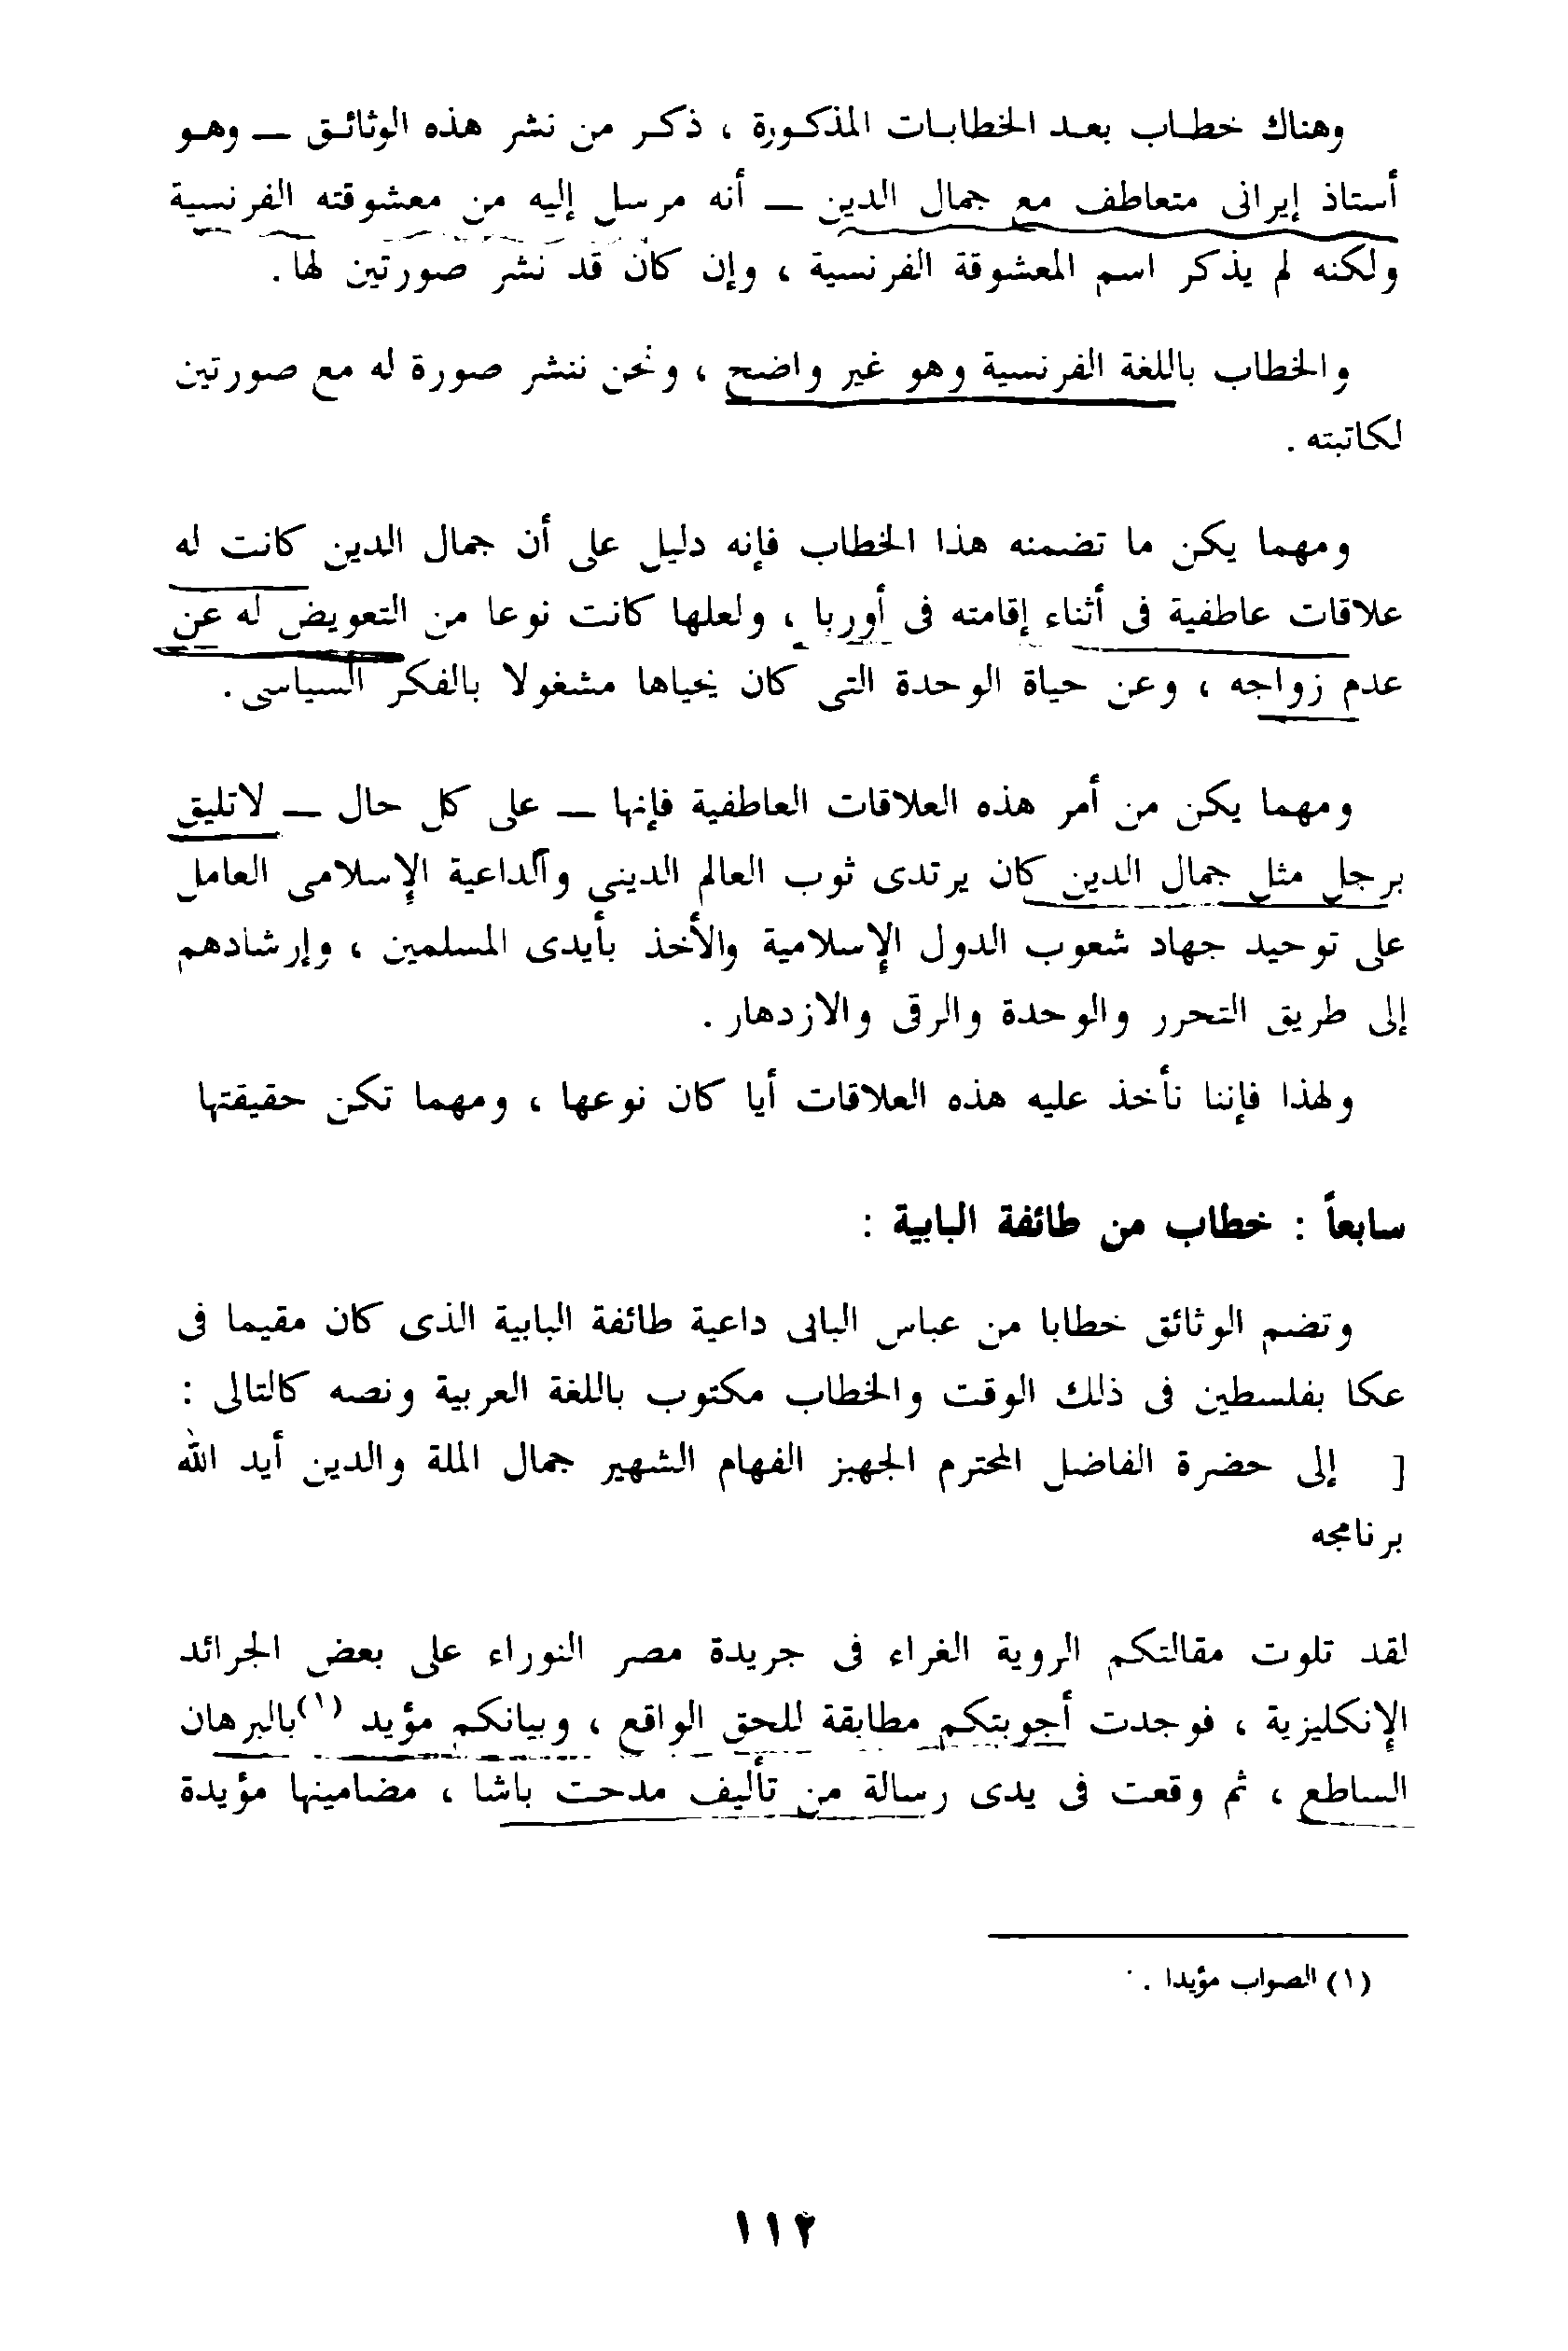 وهناك خطاب بعد الخطابات المذكورة ، ذكر من نشر هذه الوثائق — وهو
أستاذ إيرانى متعاطف مع جمال الدين — أنه مرسل إليه من معشوقته الفرنسية
ولكنه لم يذكر اسم المعشوقة الفرنسية ، وإن كان قد نشر صورتين لها .
والخطاب باللغة الفرنسية وهو غير واضح ، ونحن ننشر صورة له مع صورتين
لكاتبته .
ومهما يكن ما تضمنه هذا الخطاب فإنه دليل على أن جمال الدين كانت له
علاقات عاطفية فى أثناء إقامته فى أوربا ، ولعلها كانت نوعا من التعويض له عن
عدم زواجه ، وعن حياة الوحدة التى كان يحياها مشغولا بالفكر السياسى .
ومهما يكن من أمر هذه العلاقات العاطفية فإنها — على كل حال — لاتليق
برجل مثل جمال الدين كان يرتدى ثوب العالم الدينى والداعية الإسلامى العامل
على توحيد جهاد شعوب الدول الإسلامية والأخذ بأيدى المسلمين ، وإرشادهم
إلى طريق التحرر والوحدة والرقى والازدهار .
ولهذا فإننا نأخذ عليه هذه العلاقات أيا كان نوعها ، ومهما تكن حقيقتها
سابعاً : خطاب من طائفة البابية :
وتضم الوثائق خطابا من عباس البابى داعية طائفة البابية الذى كان مقيما فى
عكا بفلسطين فى ذلك الوقت والخطاب مكتوب باللغة العربية ونصه كالتالى :
[ إلى حضرة الفاضل المحترم الجهبز الفهام الشهير جمال الملة والدين أيد الله
برنامجه
لقد تلوت مقالتكم الروية الغراء فى جريدة مصر النوراء على بعض الجرائد
الإنكليزية ، فوجدت أجوبتكم مطابقة للحق الواقع ، وبيانكم مؤيد (١) بالبرهان
الساطع ، ثم وقعت فى يدى رسالة من تأليف مدحت باشا ، مضامينها مؤيدة
(١) الصواب مؤيدا .
١١٢